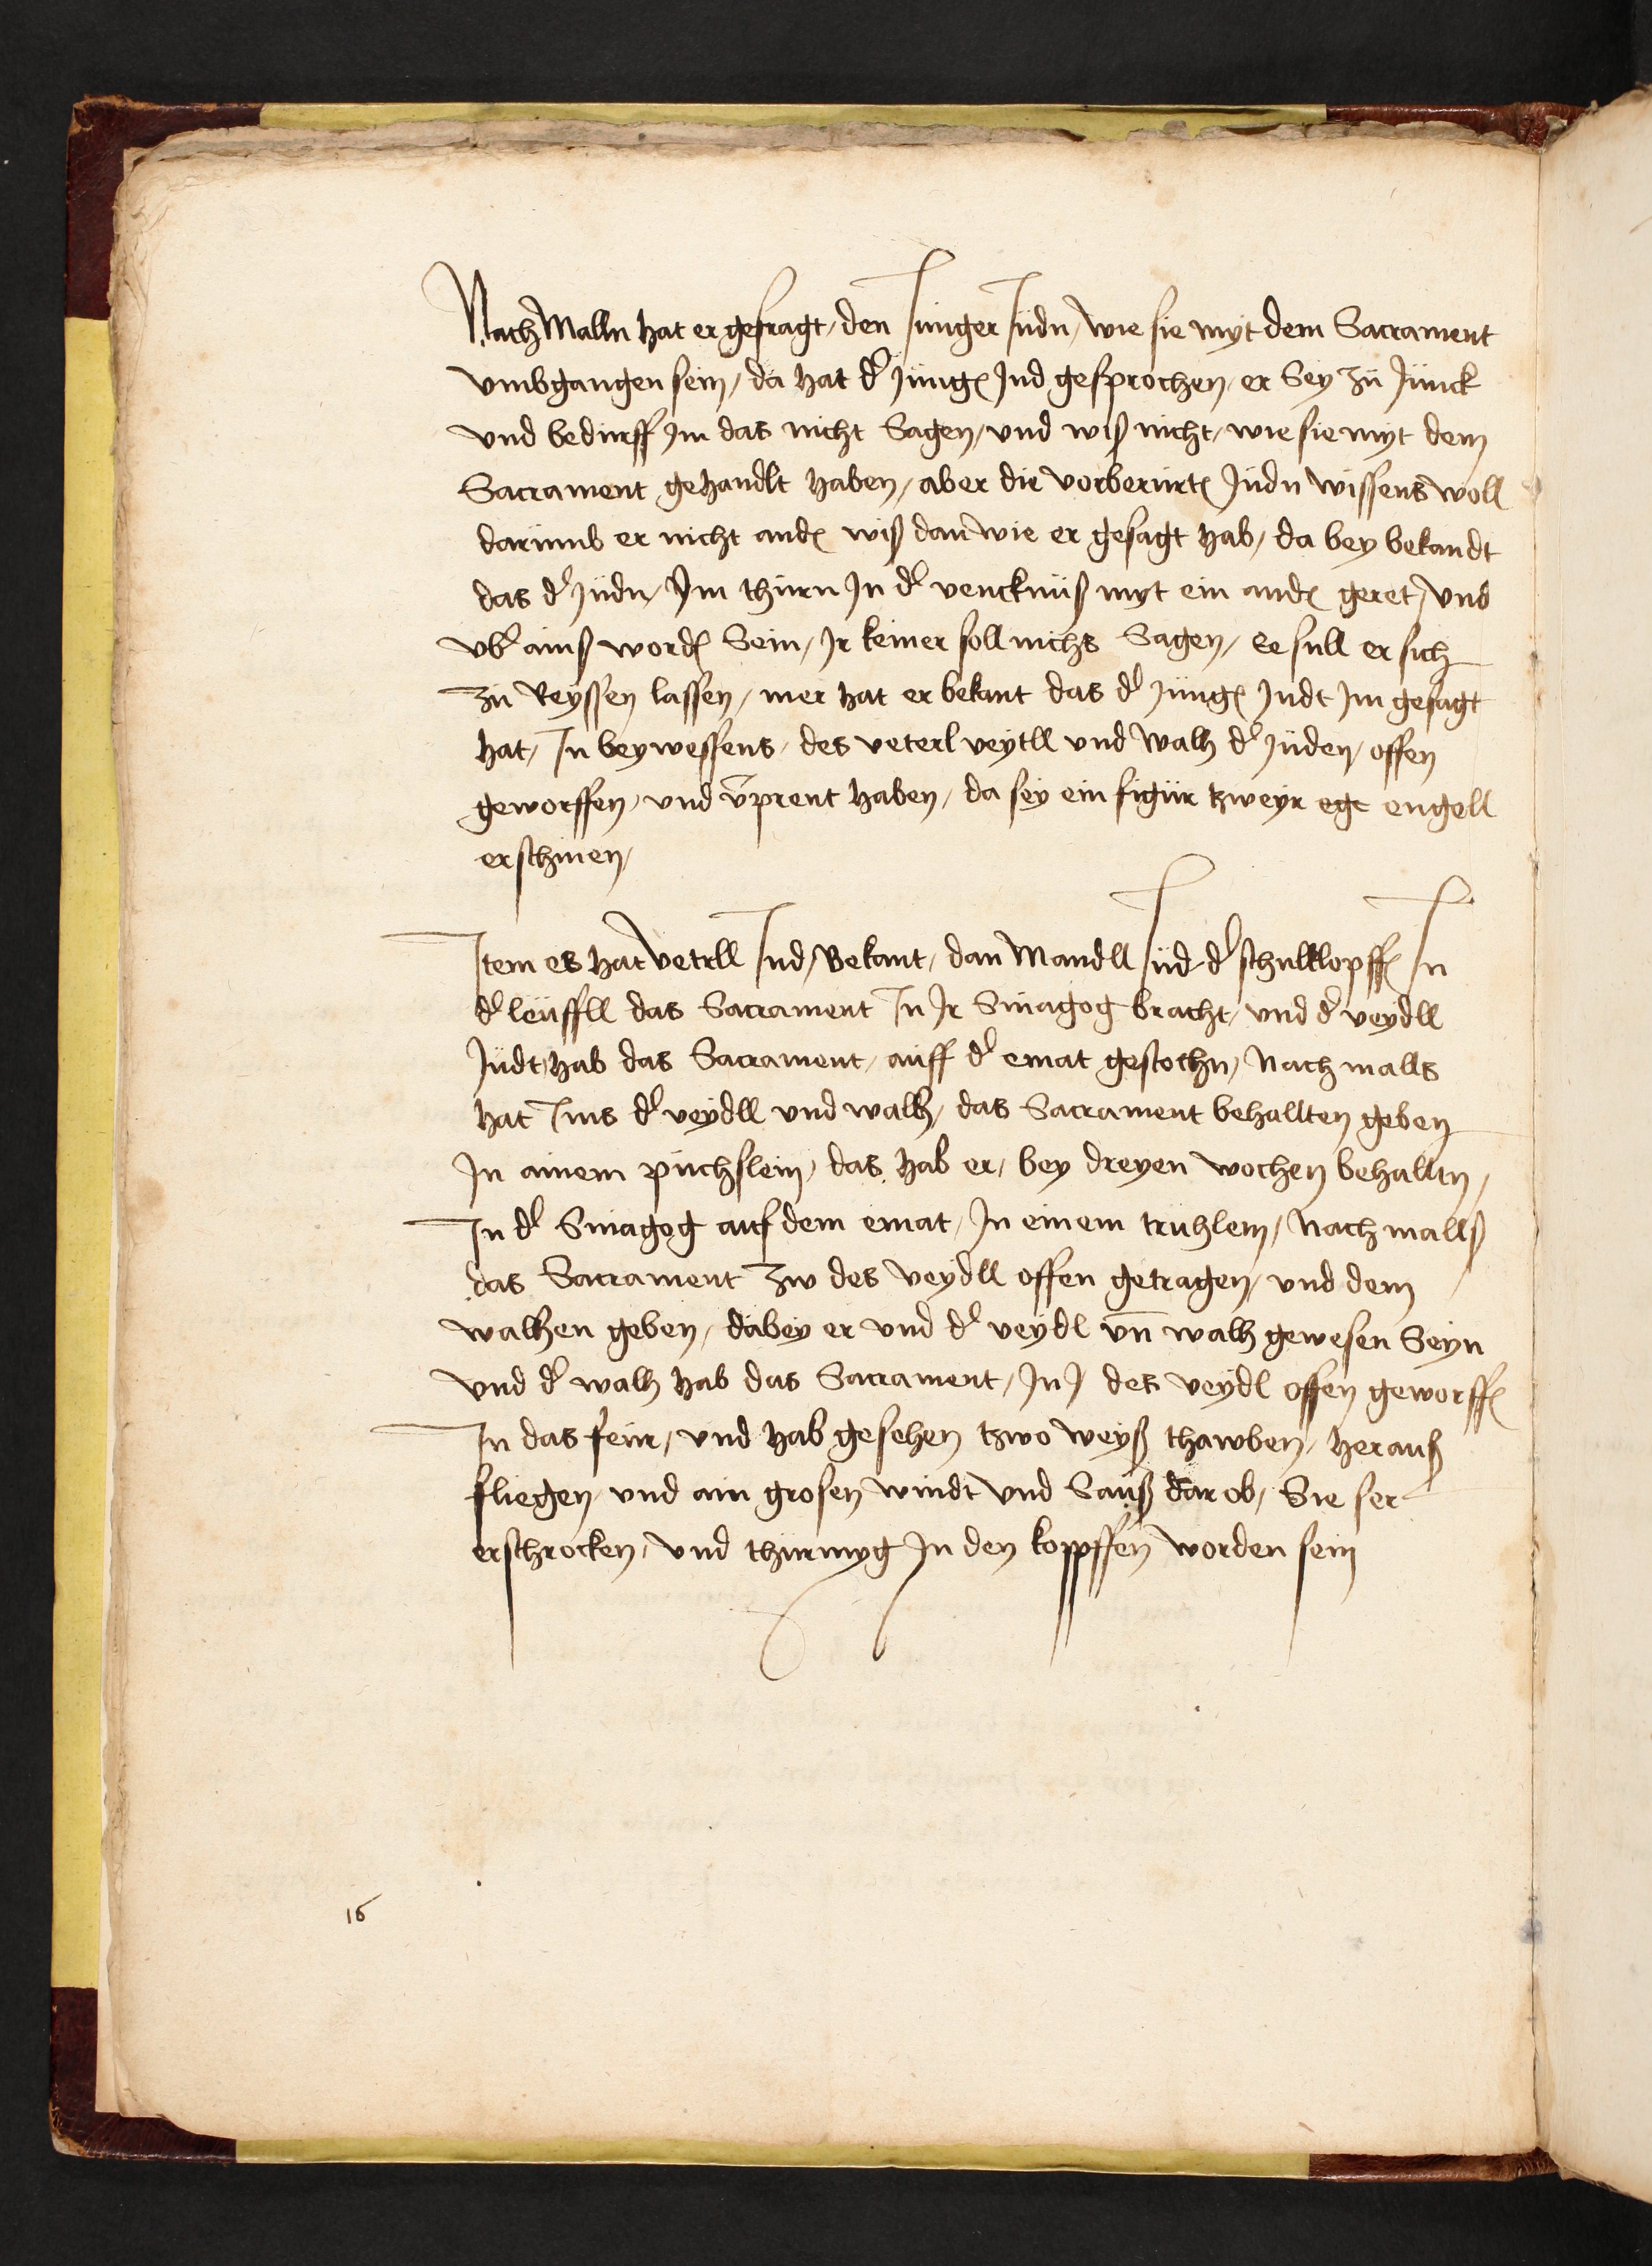 Nach Malln hat er gefragt / den Junger Judn / wie sie myt dem Sacrament
vmbgangen sein / da hat d' Jung' Jud gesprochen / er Sey zu Junck
vnd bedurff Im das nicht Sagen / vnd wiß nicht / wie sie myt dem
Sacrament gehandlt haben / aber die vorberurt' Judn wissens woll
darumb er nicht and' wiß dan wie er gesagt hab / da bey bekandt
das d' Judn / Im thurn In d' vencknuß myt ein and' geret / vnd
vb' ainß word' Sein / Ir keiner soll nichs Sagen / Ee sull er sich
zu Reyssen lassen / mer hat er bekant das d' Jung' Judt Im gesagt
hat / In beywessens / des veterl veytll vnd walh d' Juden / offen
geworffen / vnd v̄prent haben / da sey ein figur tzweyr ege engell
erschinen /
Item es hat vetrll Jud / Bekant / dan Mandll Jud d' schulklopff' In
d' leuffll das Sacrament In Ir Sinagog bracht / vnd d' veydll
Judt hab das Sacrament / auff d' emat gestochn / Nach malls
hat Ims d' veydll vnd walh / das Sacrament behallten geben
In ainem puchslein / das hab er / bey dreyen wochen behalltn /
In d' Sinagog auf dem emat / In einem truhlein / Nach mallß
das Sacrament zw des veydll offen getragen / vnd dem
walhen geben / dabey er vnd d' veydl vn̄ walh gewesen Seyn
vnd d' walh hab das Sacrament / In J des veydl offen geworff'
In das feur / vnd hab gesehen tzwo weyß thawben / herauß
fliegen / vnd ain grosen windt vnd Sauß dar ob / Sie ser
erschrocken / vnd thurmyg In den koppffen worden sein
16